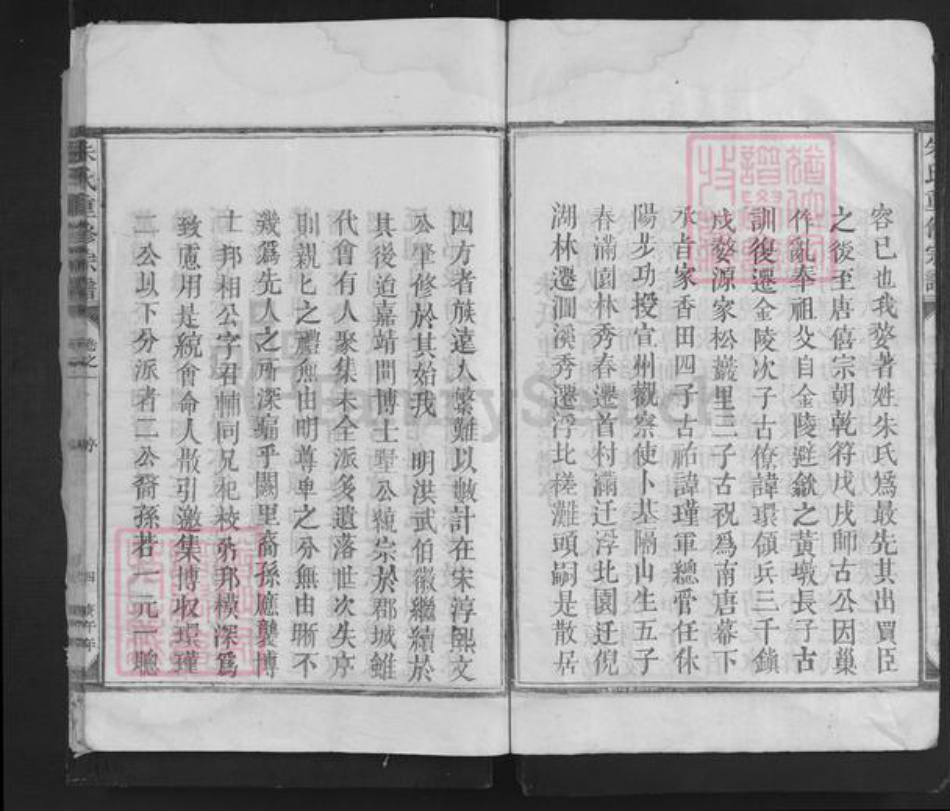 容已也我婺著姓朱氏爲最先其出買臣
之後至唐僖宗朝乾符戊戌師古公因巢
作亂奉祖父自金陵避歙之黃墩長子古
訓復遷金陵次子古僚諱瓌領兵三千鎮
戍婺源家松巖里三子古祝爲南唐幕下
承旨家香田四子古祐諱瑾軍總管任休
陽步功授宣州觀察使卜基隔山生五子
春滿園林秀春遷首村滿迁浮北園迁倪
湖林遷泗溪秀遷浮北槎灘頭嗣是散居
四方者族遠人繁難以數計在宋淳熙文
公肇修於其始我 明洪武伯徽繼續於
其後逌嘉靖間博士墅公䡾宗於郡城雖
代會有人聚集未全派多遺落世次失序
則親匕之禮無由明尊卑之分無由晰不
幾爲先人之所深痛乎闕里裔孫應龑博
士邦相公字君輔同兄杞校弟邦模深爲
致慮用是統會命人散引邀集博收瓌瑾
二公以下分派者二公裔孫若一元一聰
朱氏重修宗譜
卷之一
序
四